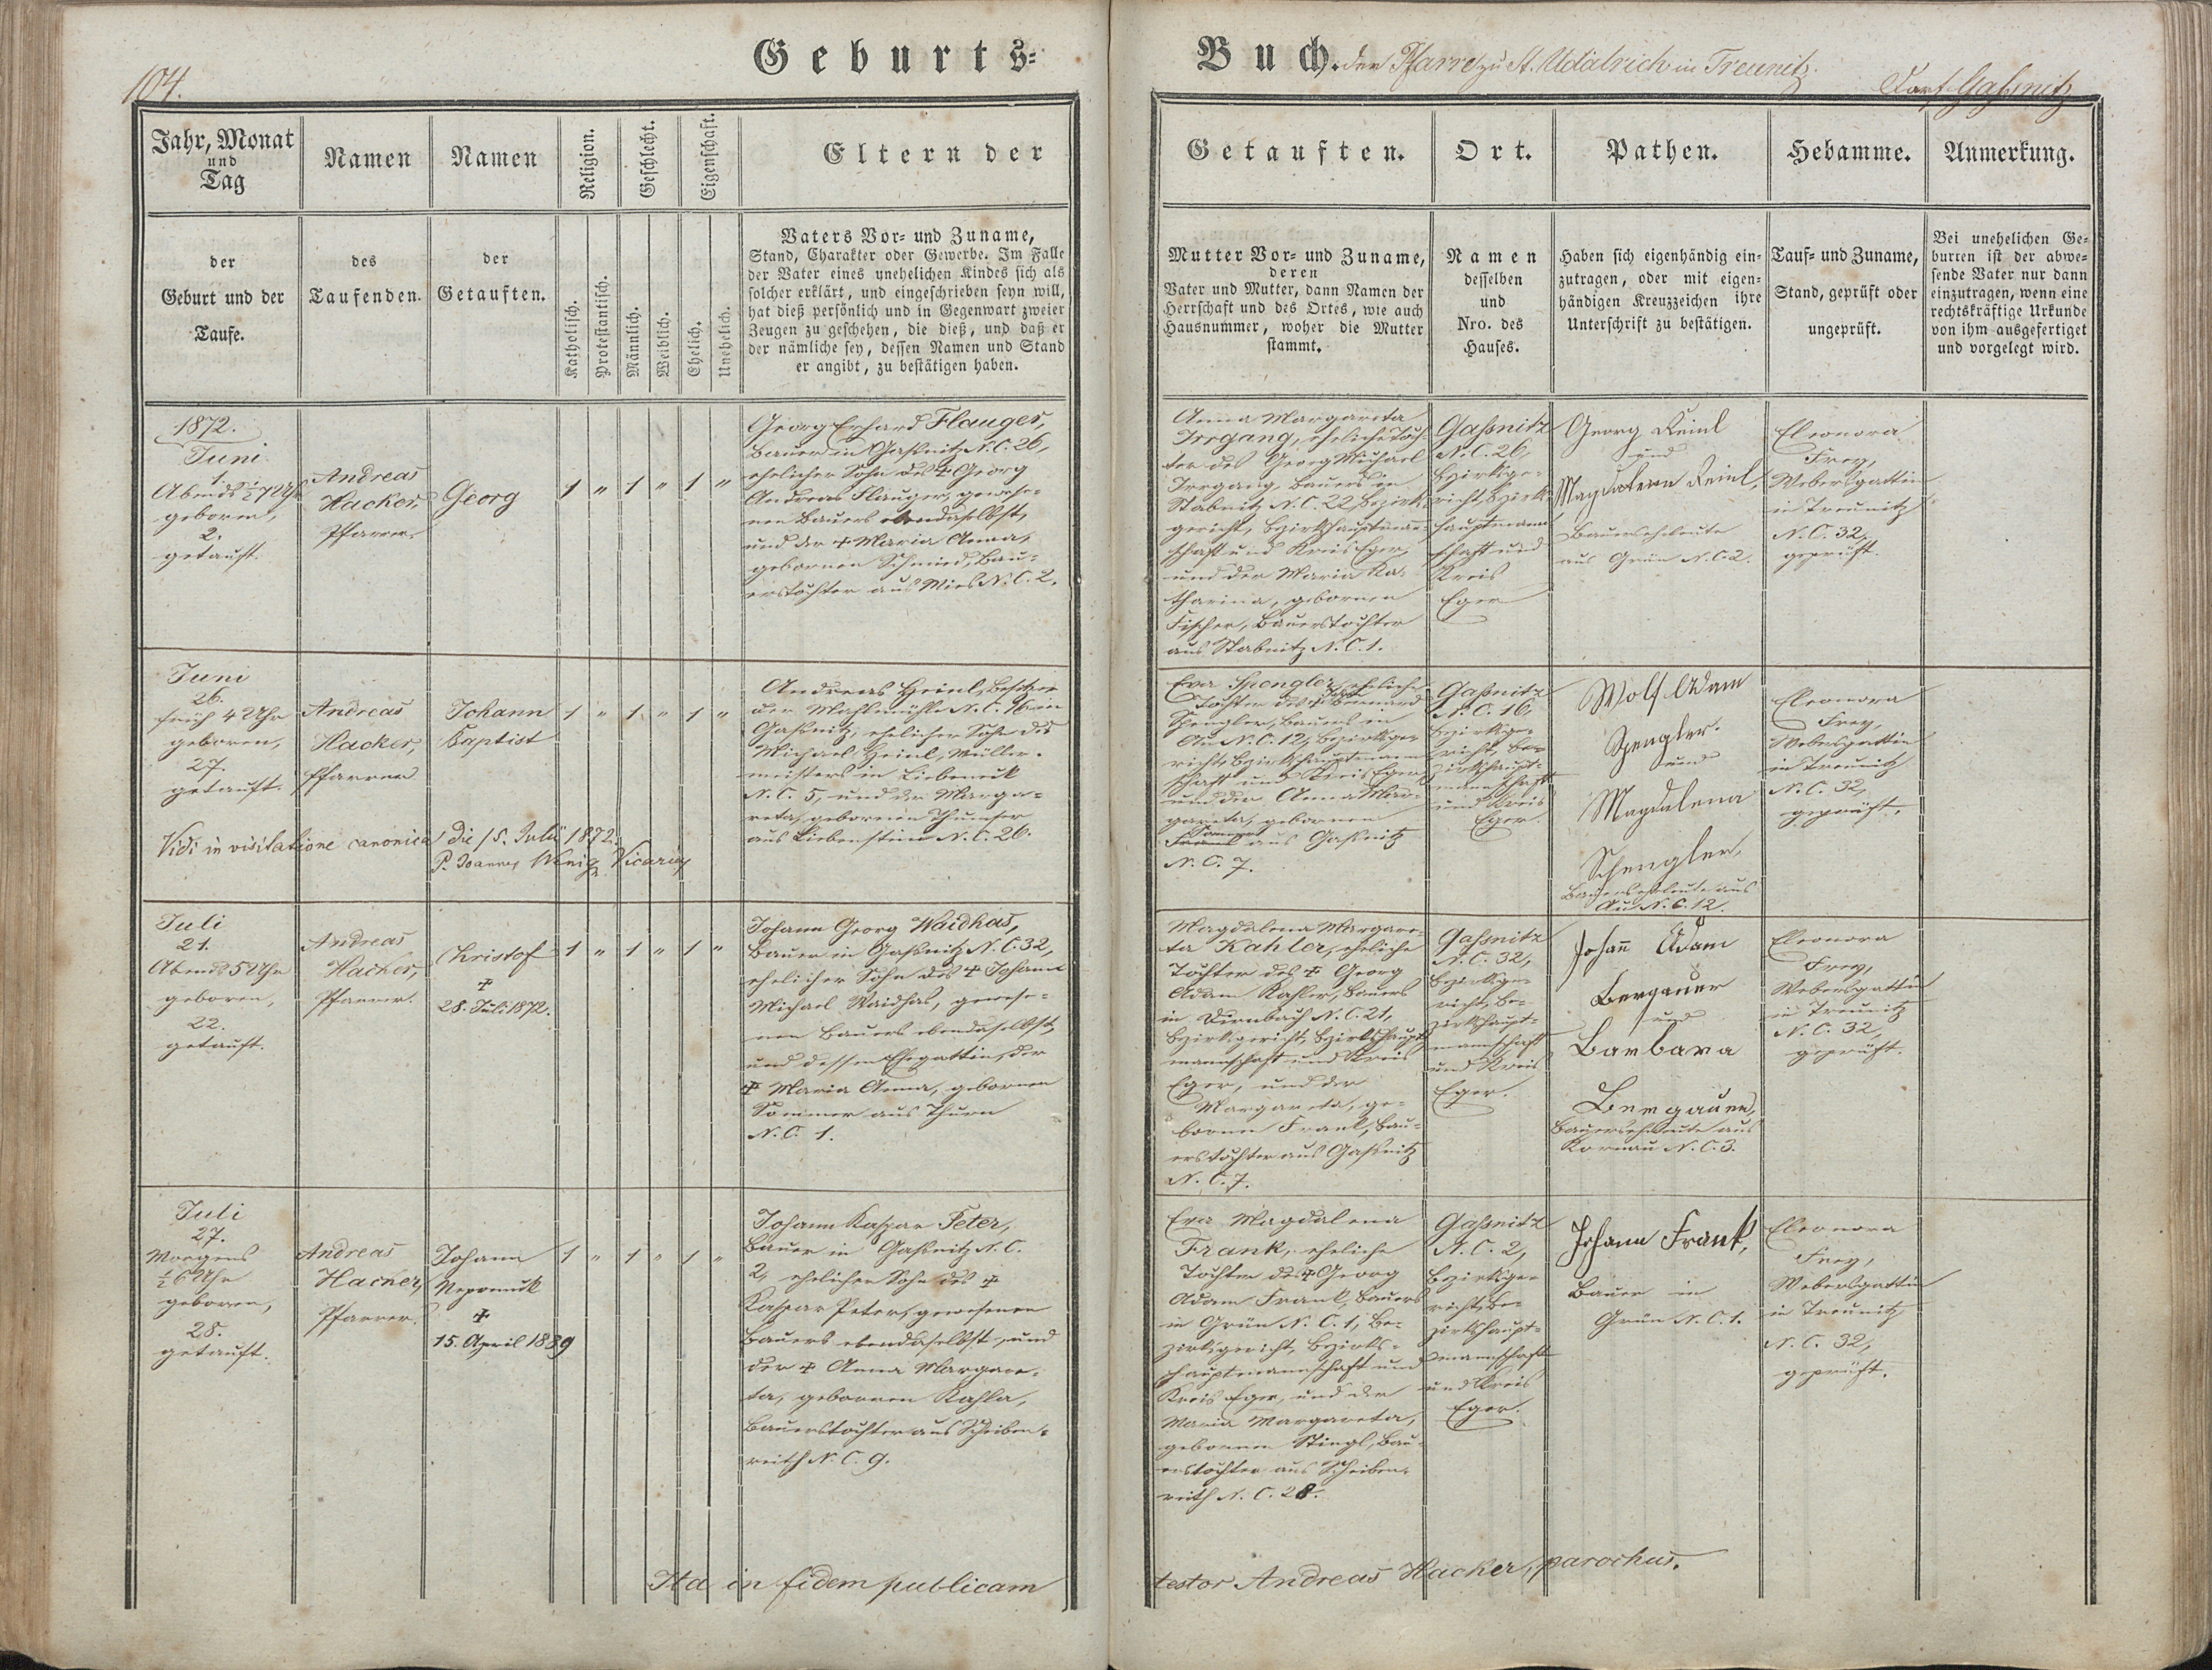 104.
Geburts=
Buch. der Pfarre zu St. Udalrich in Treunitz.
Dorf Gaßnitz
Jahr, Monat
und
Tag
Namen
Namen
Religion.
Geschlecht.
Eigenschaft.
Eltern der
Getauften.
Ort.
Pathen.
Hebamme.
Anmerkung.
der
Geburt und der
Taufe.
des
Taufenden.
der
Getauften.
Katholisch.
Protestantisch.
Männlich.
Weiblich.
Ehelich.
Unehelich.
Vaters Vor= und Zuname,
Stand, Charakter oder Gewerbe. Im Falle
der Vater eines unehelichen Kindes sich als
solcher erklärt, und eingeschrieben seyn will,
hat dieß persönlich und in Gegenwart zweier
Zeugen zu geschehen, die dieß, und daß er
der nämliche sey, dessen Namen und Stand
er angibt, zu bestätigen haben.
Mutter Vor= und Zuname,
deren
Vater und Mutter, dann Namen der
Herrschaft und des Ortes, wie auch
Hausnummer, woher die Mutter
stammt.
Namen
desselben
und
Nro. des
Hauses.
Haben sich eigenhändig ein=
zutragen, oder mit eigen=
händigen Kreuzzeichen ihre
Unterschrift zu bestätigen.
Tauf= und Zuname,
Stand, geprüft oder
ungeprüft.
Bei unehelichen Ge=
burten ist der abwe=
sende Vater nur dann
einzutragen, wenn eine
rechtskräftige Urkunde
von ihm ausgefertiget
und vorgelegt wird.
1872.
Juni
1.
Abends ½7 Uhr
geboren,
2.
getauft.
Andreas
Hacker,
Pfarrer.
Georg
1 " 1 " 1 "
Georg Erhard Flauger,
Bauer in Gaßnitz N. C. 26,
ehelicher Sohn des ✝ Georg
Andreas Flauger, gewese=
nen Bauers ebendaselbst,
und der ✝ Maria Anna,
gebornen Schmied, Bau=
erstochter aus Mies N. C. 2.
Anna Margareta
Irrgang, eheliche Toch=
ter des Georg Michael
Irrgang, Bauers in
Stabnitz N. C. 22, Bezirks=
gericht, Bezirkshauptmann=
schaft und Kreis Eger,
und der Maria Ka=
tharina, gebornen
Fischer, Bauerstochter
aus Stabnitz N. C. 1.
Gaßnitz
N. C. 26,
Bezirksge=
richt, Bezirks=
hauptmann=
schaft und
Kreis
Eger
Georg Reinl
und
Magdalena Reinl,
Bauerseheleute
aus Grün N. C. 2.
Eleonora
Frey,
Webersgattin
in Treunitz
N. C. 32,
geprüft.
Juni
26.
früh 4 Uhr
geboren,
27.
getauft.
Andreas
Hacker,
Pfarrer
Johann
Baptist
1 " 1 " 1 "
Andreas Heinl, Besitzer
der Mahlmühle N. C. 16 in
Gaßnitz, ehelicher Sohn des
Michael Heinl, Müller=
meisters in Liebeneck
N. C. 5, und der Marga=
reta, gebornen Thumser
aus Liebenstein N. C. 26.
Eva Spengler, eheliche
Tochter des ✝ Bernard
Spengler, Bauers in
Au N. C. 12, Bezirksge=
richt, Bezirkshauptmann=
schaft und Kreis Eger,
und der Anna Mar=
gareta, gebornen
Frank aus Gaßnitz
N. C. 7.
Gaßnitz
N. C. 16,
Bezirksge=
richt, Be=
zirkshaupt=
mannschaft
und Kreis
Eger.
Wolf Adam
Spengler.
und
Magdalena
Schengler,
Bauerseheleute aus
Au N. C. 12.
Eleonora
Frey,
Webersgattin
in Treunitz
N. C. 32,
geprüft.
Vidi in visitatione canonica die 15. Julii 1872.
P. Joannes Wenig Vicarius
Juli
21.
Abends 5 Uhr
geboren,
22.
getauft.
Andreas
Hacker,
Pfarrer.
Christof
✝
28. Juli 1872.
1 " 1 " 1 "
Johann Georg Waidhas,
Bauer in Gaßnitz N. C. 32,
ehelicher Sohn des ✝ Johann
Michael Waidhas, gewese=
nen Bauers ebendaselbst,
und dessen Ehegattin, der
✝ Maria Anna, gebornen
Sommer aus Thurn
N. C. 1.
Magdalena Margare=
ta Kahler, eheliche
Tochter des ✝ Georg
Adam Kahler, Bauers
in Dirnbach N. C. 21,
Bezirksgericht, Bezirkshaupt=
mannschaft und Kreis
Eger, und der
Margareta, ge=
bornen Frank, Bau=
erstochter aus Gaßnitz
N. C. 7.
Gaßnitz
N. C. 32,
Bezirksge=
richt, Be=
zirkshaupt=
mannschaft
und Kreis
Eger.
Johann Adam
Bergauer
und
Barbara
Bergauer,
Bauerseheleute aus
Kornau N. C. 3.
Eleonora
Frey,
Webersgattin
in Treunitz
N. C. 32,
geprüft.
Juli
27.
Morgens
½6 Uhr
geboren,
28.
getauft.
Andreas
Hacker,
Pfarrer.
Johann
Nepomuk
✝
15. April 1889
1 " 1 " 1 "
Johann Kaspar Peter,
Bauer in Gaßnitz N. C.
2, ehelicher Sohn des ✝
Kaspar Peter, gewesenen
Bauers ebendaselbst, und
der ✝ Anna Margare=
ta, gebornen Kahla,
Bauerstochter aus Scheiben=
reith N. C. 9.
Eva Magdalena
Frank, eheliche
Tochter des ✝ Georg
Adam Frank, Bauers
in Grün N. C. 1, Be=
zirksgericht, Bezirks=
hauptmannschaft und
Kreis Eger, und der
Maria Margareta,
gebornen Stingl, Bau=
erstochter aus Scheiben=
reith N. C. 28.
Gaßnitz
N. C. 2,
Bezirksge=
richt, Be=
zirkshaupt=
mannschaft
und Kreis
Eger.
Johann Frank,
Bauer in
Grün N. C. 1.
Eleonora
Frey,
Webersgattin
in Treunitz
N. C. 32,
geprüft.
Ita in fidem publicam
testor Andreas Hacker, parochus.